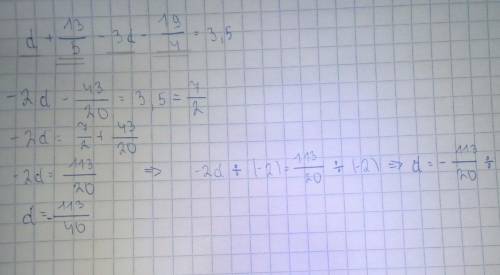 d + 13/5 - 3d - 19/4 = 3,5
-2d - 43/20 = 3,5 = 7/2
-2d = 7/2 + 43/20
-2d = 113/20 => -2d ÷ (-2) = 113/20 ÷ (-2) => d = - 113/20 ÷
d = - 113/40